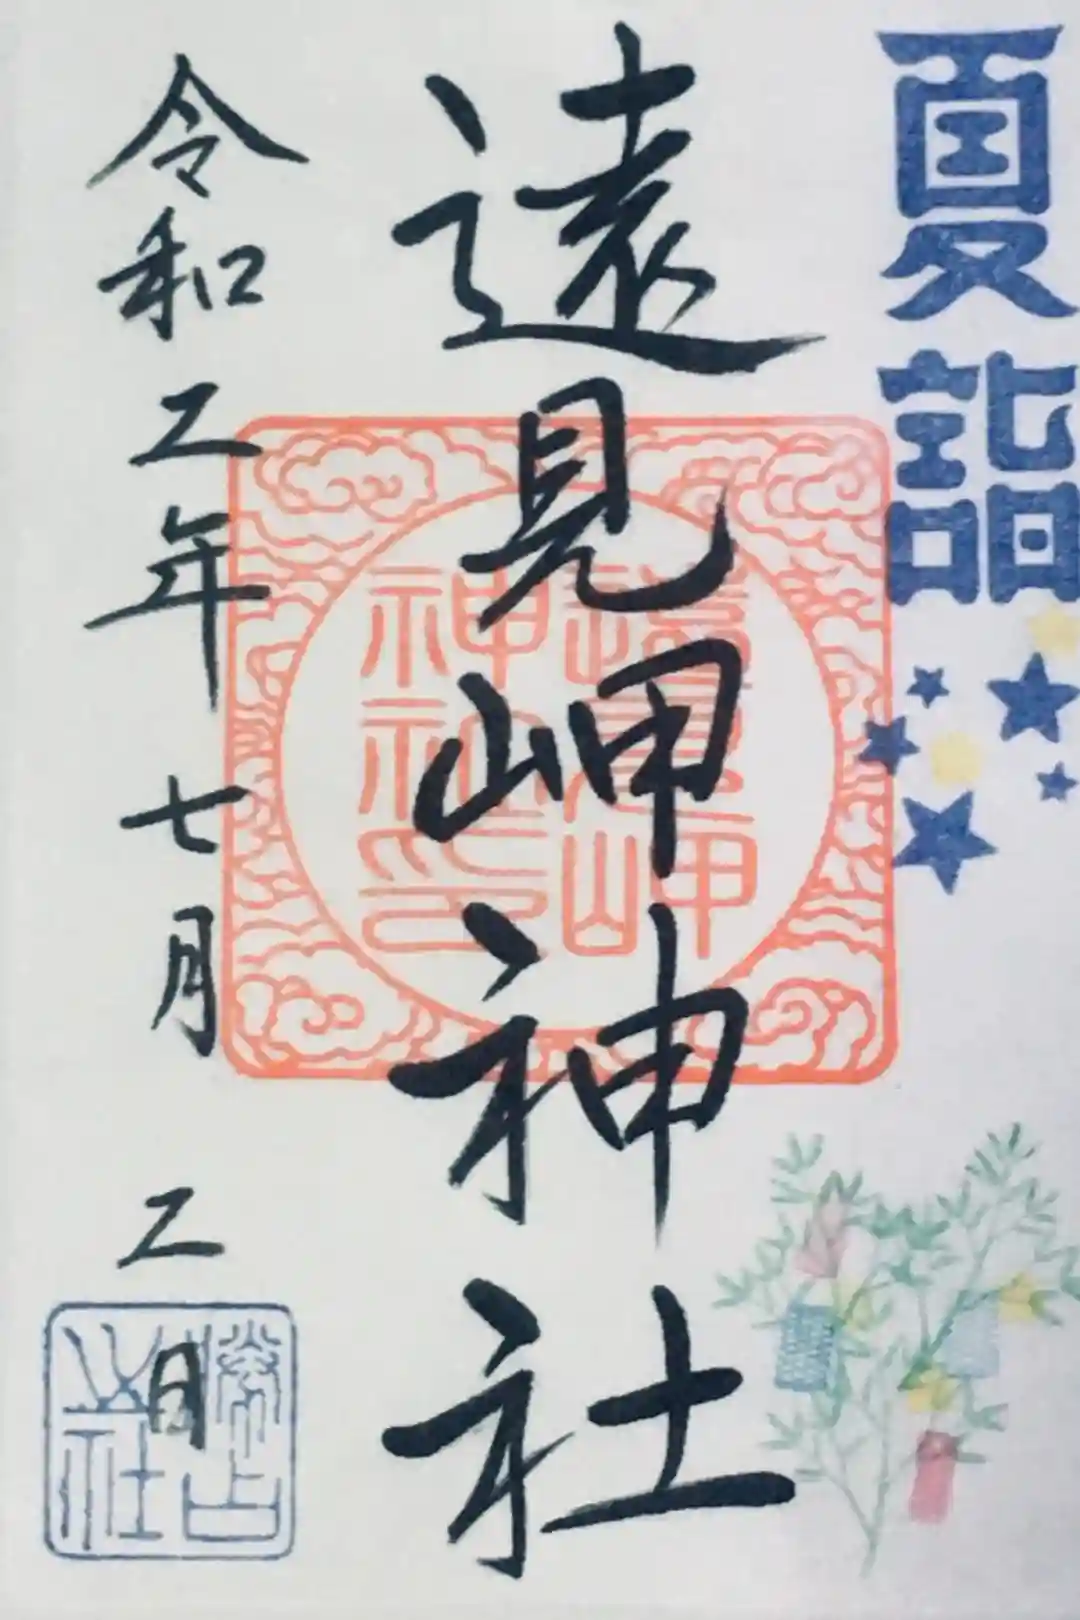 夏詣
遠見岬神社
遠見岬
神社印
令和二年七月二日